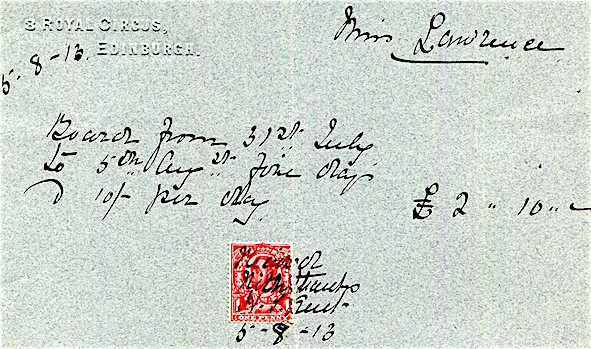 3 ROYAL CIRCUS,
EDINBURGH.
5-8-13.
Miss Lawrence
Board from 31st July
to 5th Augst five days
10/- per day
£ 2 " 10 " -
Received
With thanks
1 1
ONE PENNY
5-8-13